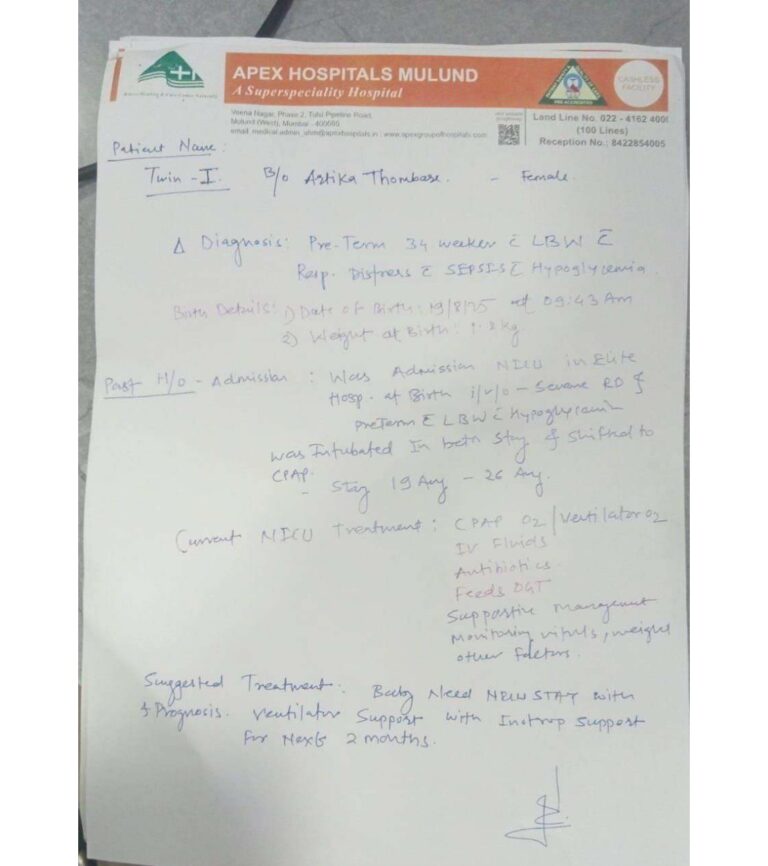 APEX HOSPITALS MULUND
A Superspeciality Hospital
CASHLESS
FACILITY
Veena Nagar, Phase 2, Tulsi Pipeline Road,
Mulund (West), Mumbai - 400080
www.apexgroupofhospitals.com
Land Line No. 022 - 4162 400
(100 Lines)
Reception No.: 8422854005
Patient Name:
Twin - I. B/o Artika Thombare. - Female.
Δ Diagnosis: Pre-Term 34 weeker c̄ LBW c̄
Resp. Distress c̄ SEPSIS c̄ Hypoglycemia.
Birth Details: 1) Date of Birth: 19/8/25 at 09:43 Am
2) Weight at Birth: 1.8 kg.
Past H/o - Admission : Was Admission NICU in Elite
Hosp. at Birth i/v/o - Severe RD &
PreTerm c̄ LBW c̄ Hypoglycemia
was Intubated In beth stay & shifted to
CPAP.
- Stay 19 Aug - 26 Aug.
Current NICU Treatment : CPAP O2 / Ventilator O2
IV Fluids
Antibiotics.
Feeds OGT
Supportive management
Monitoring vitals, weight
other factors.
Suggested Treatment: Baby Need STAY with
& Prognosis. Ventilator Support with Inotrop support
for Next 2 months.